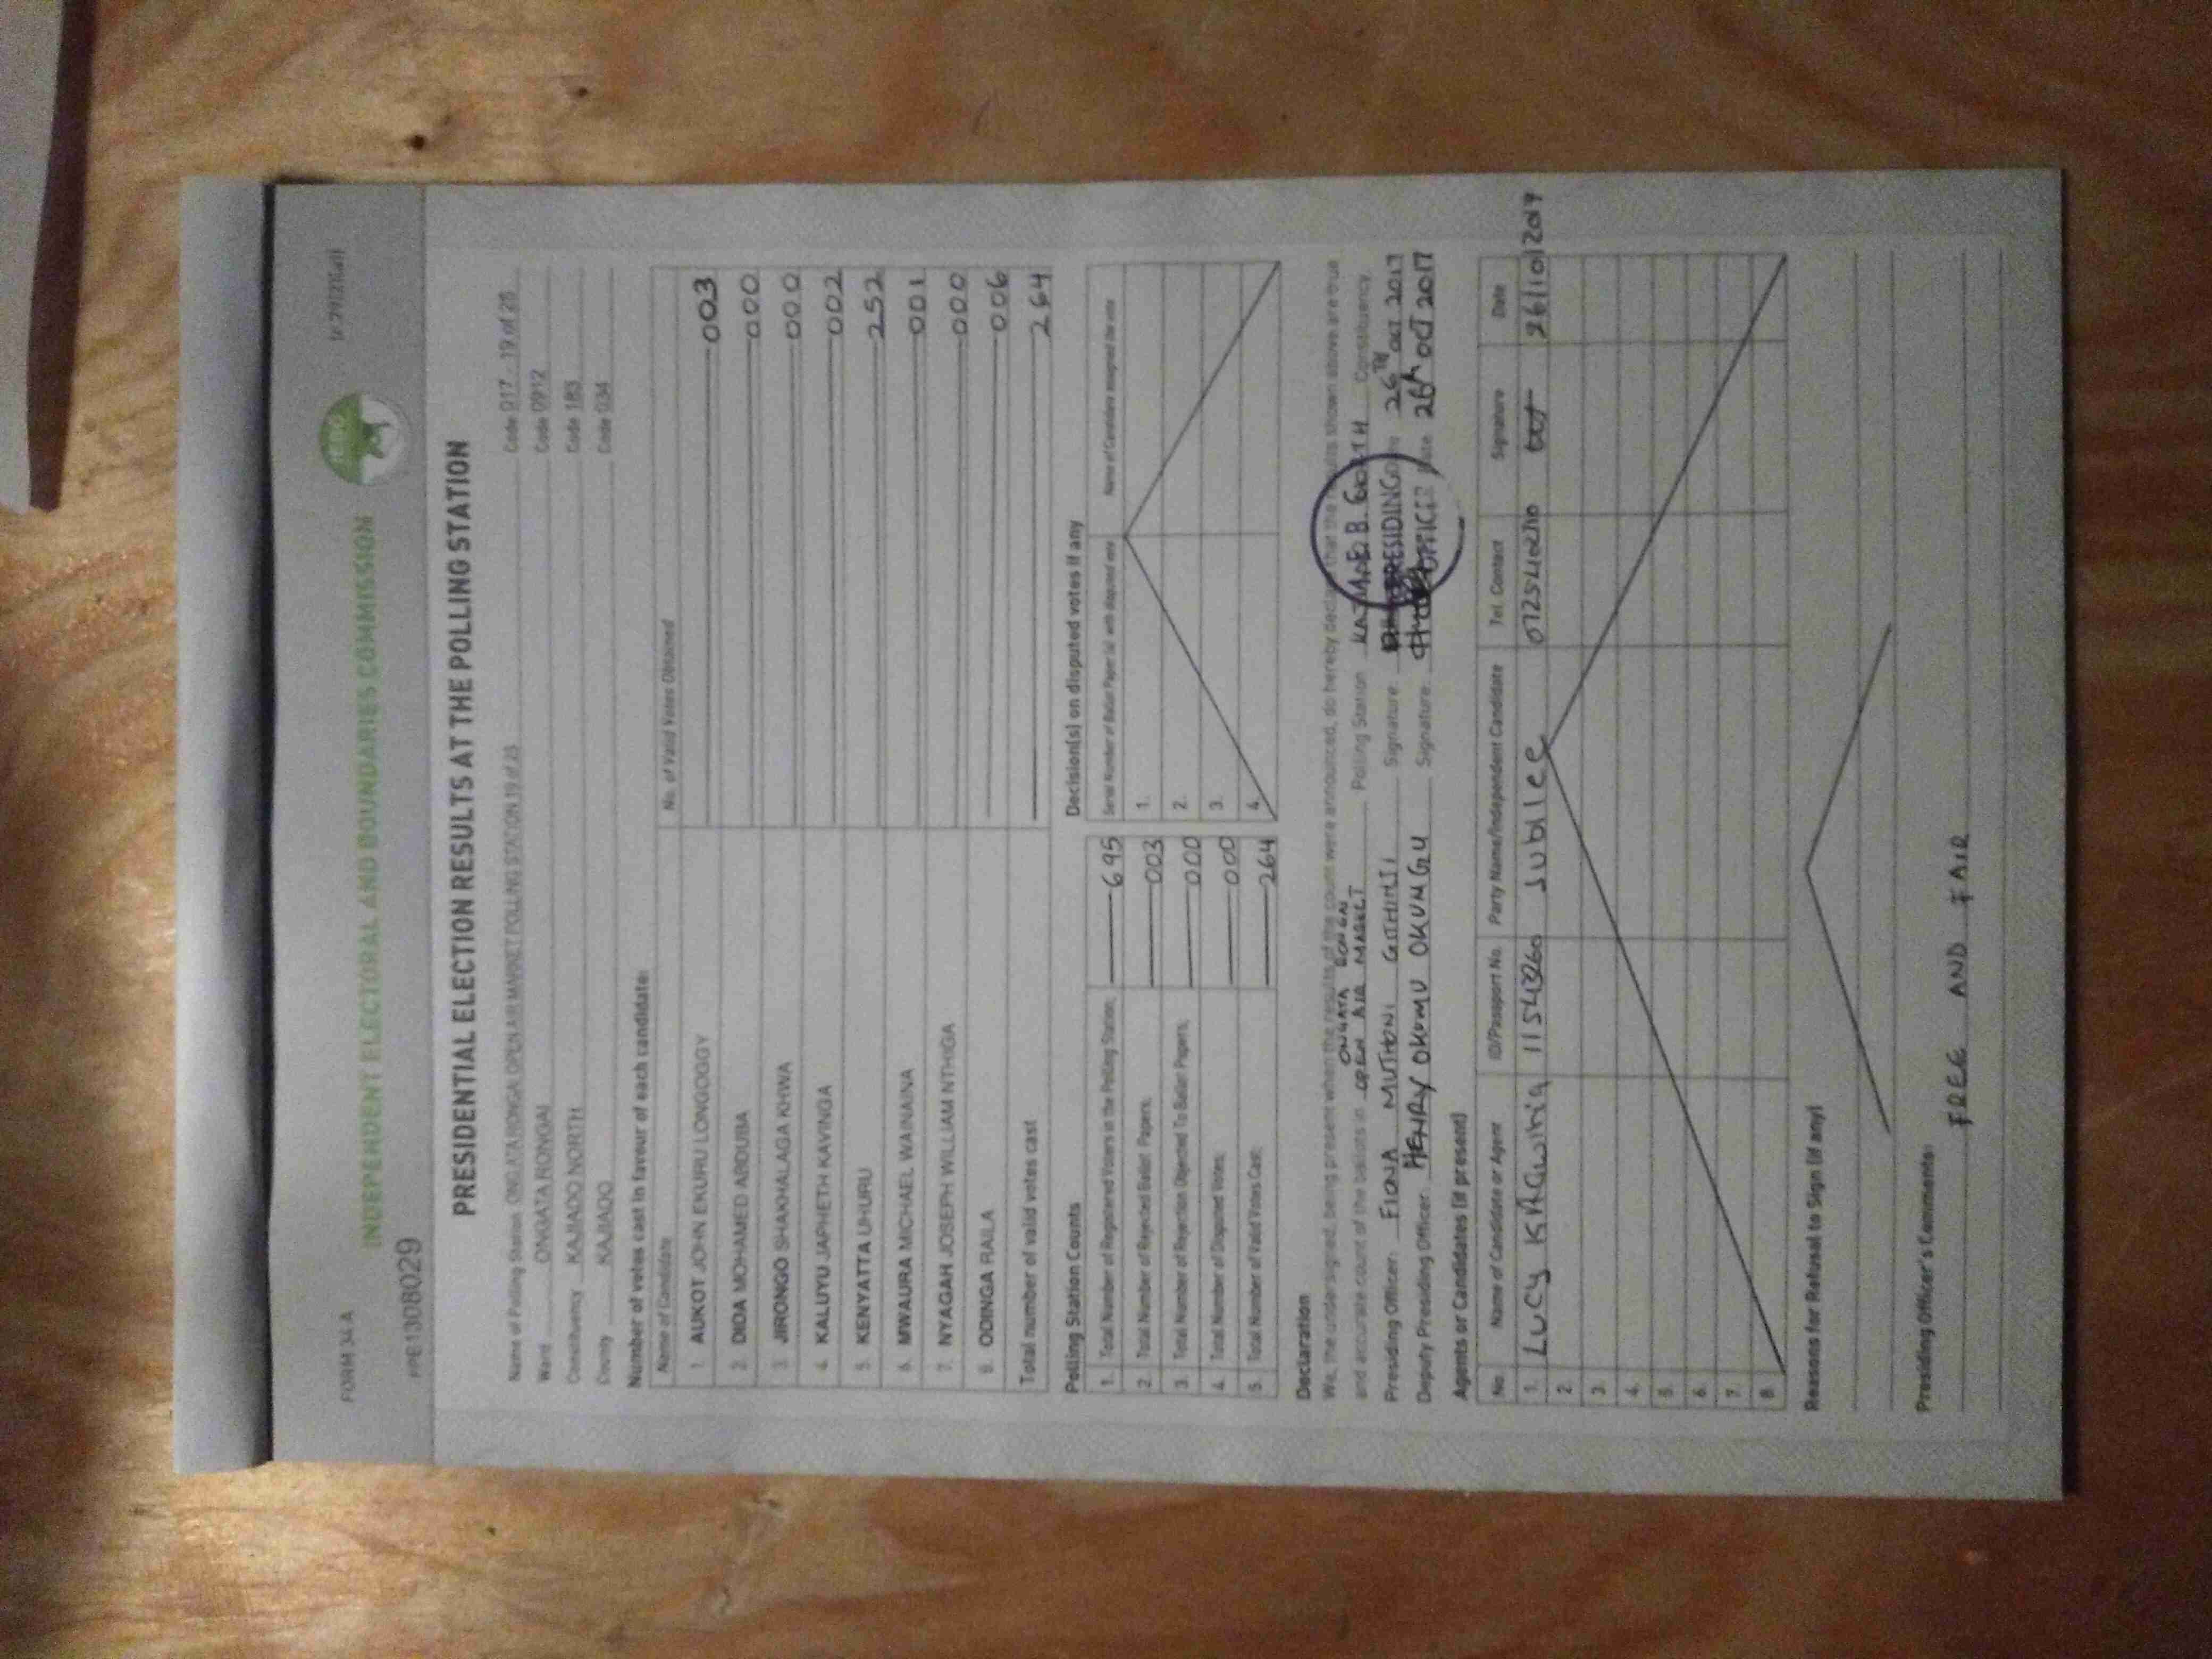 FORM 34 A
INDEPENDENT ELECTORAL AND BOUNDARIES COMMISSION
PPE13008029
PRESIDENTIAL ELECTION RESULTS AT THE POLLING STATION
Name of Polling Station ONGATA RONGAI OPEN AIR MARKET POLLING STATION 19 of 25 Code 017 - 19 of 25
Ward ONGATA RONGAI Code 0912
Constituency KAJIADO NORTH Code 183
County KAJIADO Code 034
Number of votes cast in favour of each candidate:
Name of Candidate No. of Valid Votes Obtained
1. AUKOT JOHN EKURU LONGOGGY 003
2. DIDA MOHAMED ABDUBA 000
3. JIRONGO SHAKHALAGA KHWA 000
4. KALUYU JAPHETH KAVINGA 002
5. KENYATTA UHURU 252
6. MWAURA MICHAEL WAINAINA 001
7. NYAGAH JOSEPH WILLIAM NTHIGA 000
8. ODINGA RAILA 006
Total number of valid votes cast 264
Polling Station Counts
1. Total Number of Registered Voters in the Polling Station; 695
2. Total Number of Rejected Ballot Papers; 003
3. Total Number of Rejection Objected To Ballot Papers; 000
4. Total Number of Disputed Votes; 000
5. Total Number of Valid Votes Cast; 264
Decision(s) on disputed votes if any
Serial Number of Ballot Paper (s) with disputed vote Name of Candidate assigned the vote
1.
2.
3.
4.
Declaration
We, the undersigned, being present when the results of the count were announced, do hereby declare that the results shown above are true
ONGATA RONGAI
and accurate count of the ballots in OPEN AIR MARKET Polling Station KAJIADO NORTH Constituency.
Presiding Officer: FIONA MUTHONI GITHINJI Signature: 26TH OCT 2017
Deputy Presiding Officer HENRY OKUMU OKUNGU Signature: Date 26th OCT 2017
PRESIDING
OFFICER
Agents or Candidates (if present)
No. Name of Candidate or Agent ID/Passport No. Party Name/Independent Candidate Tel. Contact Signature Date
1. Lucy Kagwiria 11543260 Jubilee 26/10/2017
2.
3.
4.
5.
6.
7.
8.
Reasons for Refusal to Sign (if any)
Presiding Officer's Comments:
FREE AND FAIR